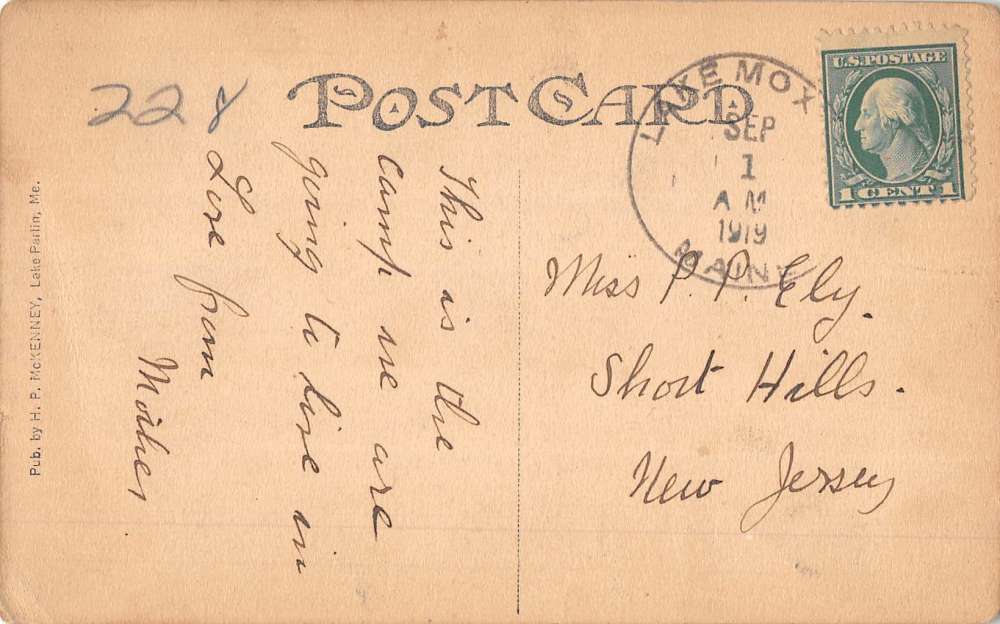 228
POST CARD
LAKE MOX
SEP
1
A M
1919
MAINE
U.S. POSTAGE
1 CENT 1
This is the
camp we are
going to live in
Love from
Mother
Miss P. P. Ely.
Short Hills.
New Jersey
Pub. by H. P. McKENNEY, Lake Parlin, Me.